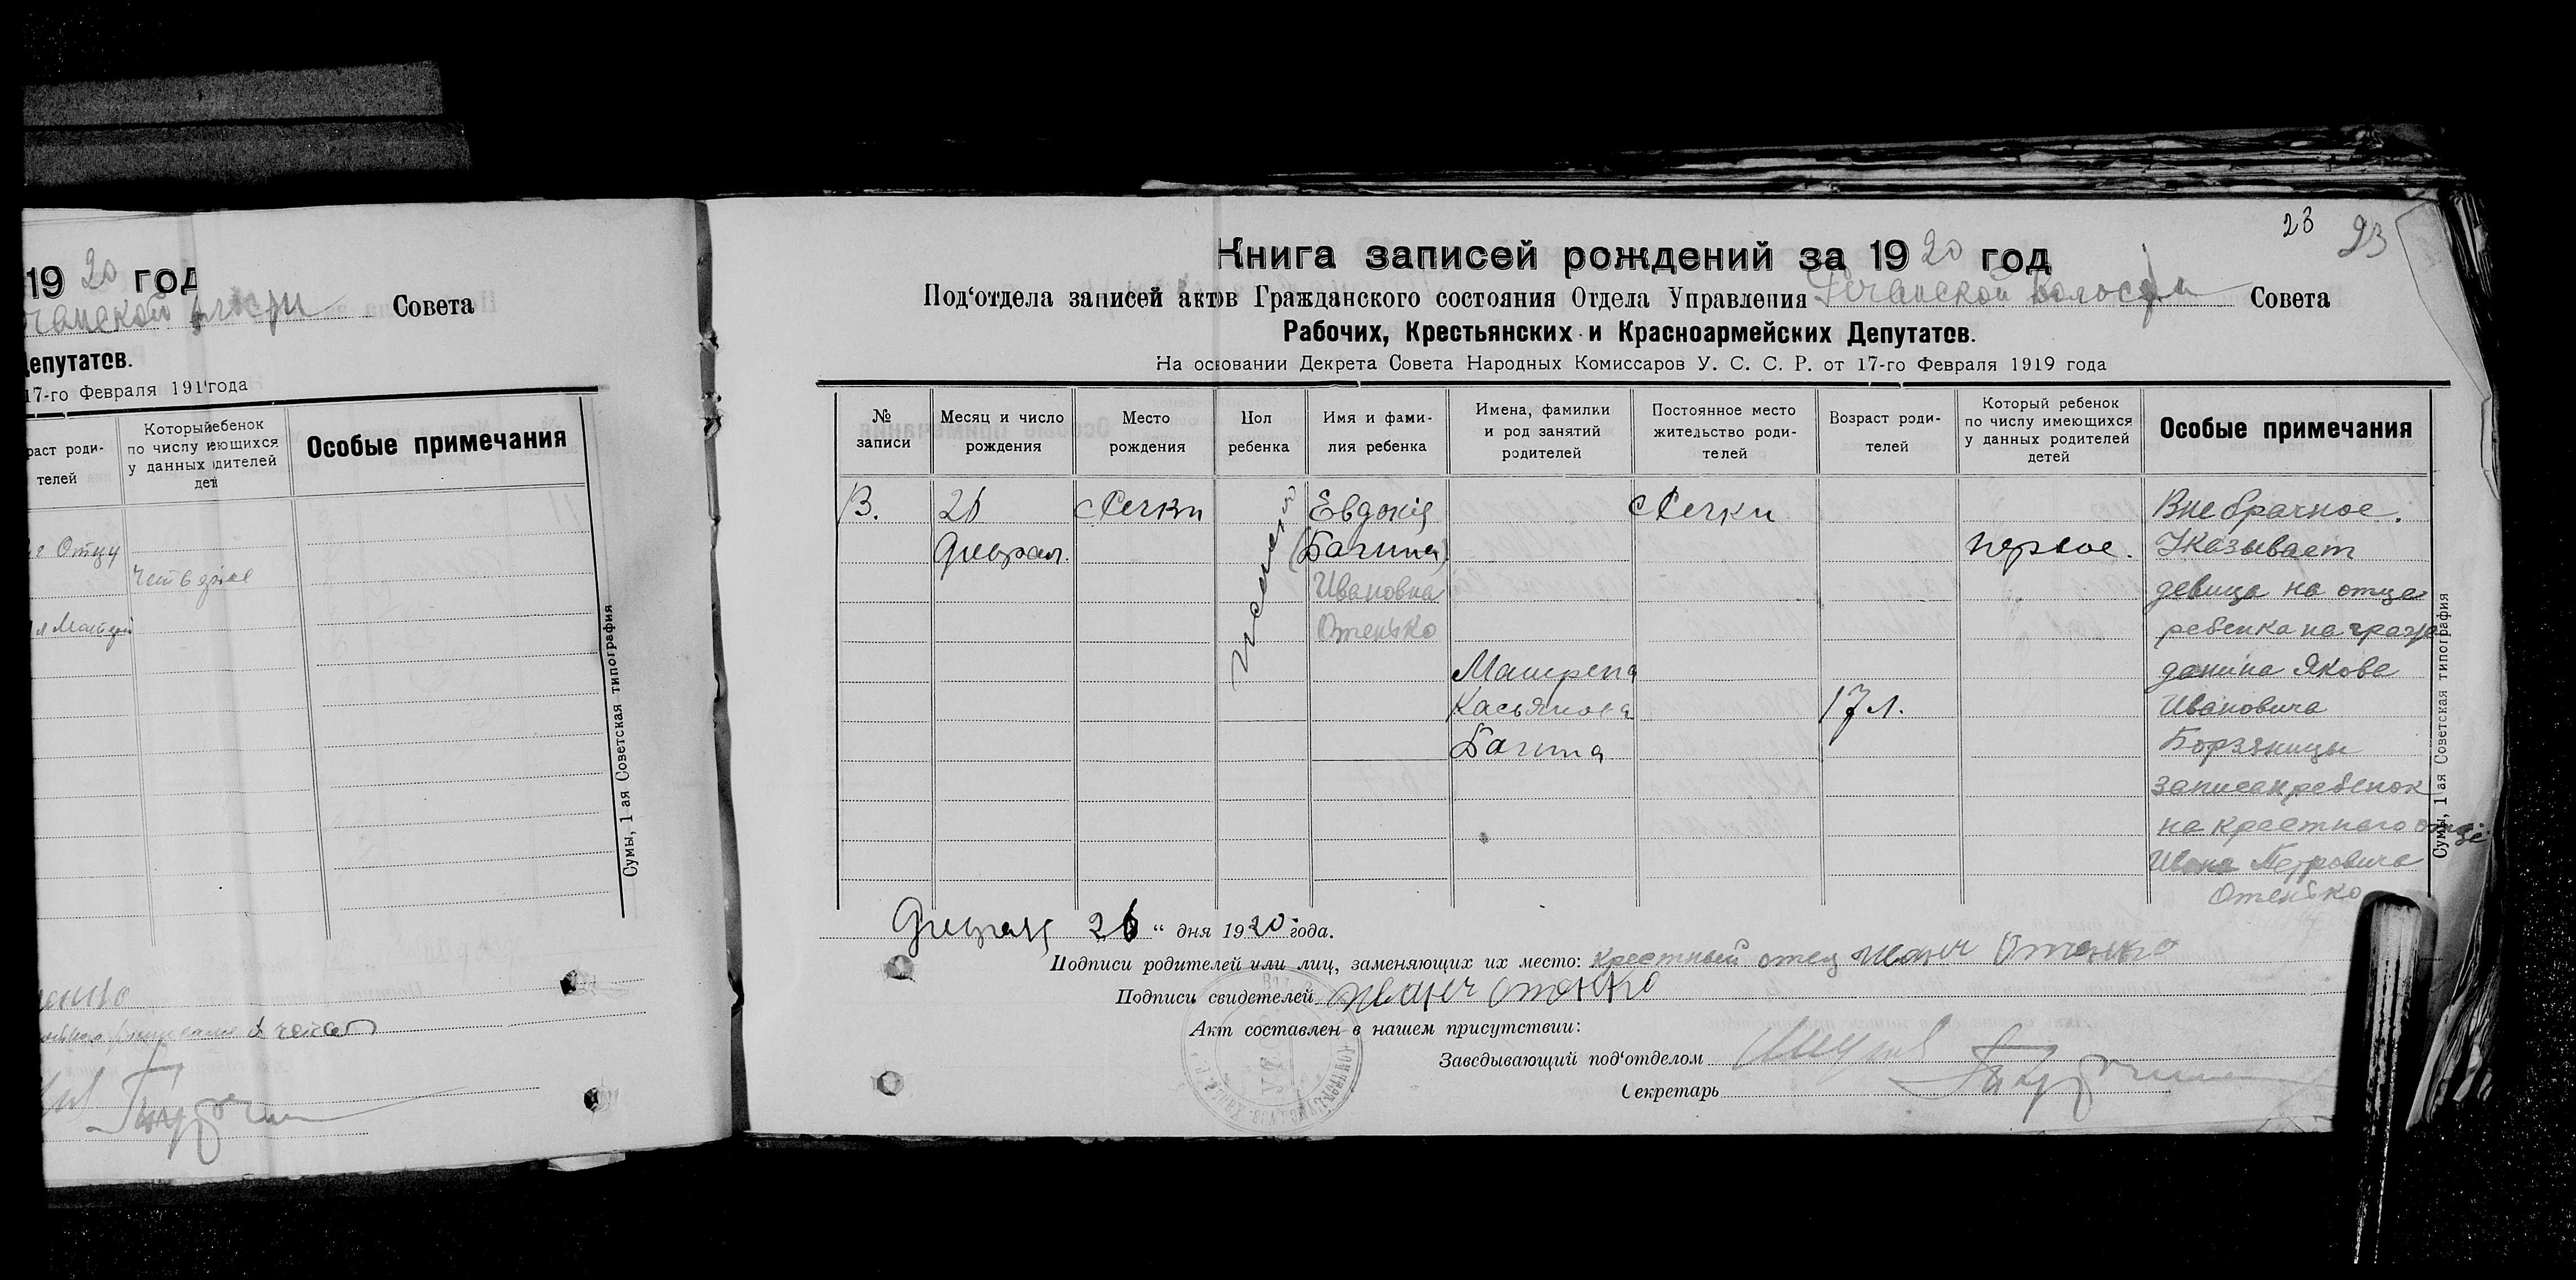 19 20 год
Совета
Депутатов.
17-го Февраля 191 года
раст роди-
телей
Который ребенок
по числу имеющихся
у данных родителей
детей
Особые примечания
Отцу
Сумы, 1 ая Советская типография
23
23
Книга записей рождений за 19 20 год
Под‘отдела записей актов Гражданского состояния Отдела Управления Речанской Волости Совета
Рабочих, Крестьянских и Красноармейских Депутатов.
На основании Декрета Совета Народных Комиссаров У. С. С. Р. от 17-го Февраля 1919 года
№
записи
Месяц и число
рождения
Место
рождения
Пол
ребенка
Имя и фами-
лия ребенка
Имена, фамилии
и род занятий
родителей
Постоянное место
жительство роди-
телей
Возраст роди-
телей
Который ребенок
по числу имеющихся
у данных родителей
детей
Особые примечания
13.
26
Феврал.
с Речки
Женский
Евдокія
(Багита)
Ивановна
Отенько
Матрена
Касьянова
Багита
с Речки
17 л.
первое.
Внебрачное.
Указывает
девица на отца
ребенка на граж
данина Якова
Ивановича
записан ребенок
на крестного отца
Ивана Петровича
Отенько
Февраля 26 “ дня 19 20 года.
Подписи родителей или лиц, заменяющих их место: крестный отец Иван Отенко
Подписи свидетелей Иван Отенко
Акт составлен в нашем присутствии:
Заведывающий под‘отделом
Секретарь
Сумы, 1 ая Советская типография